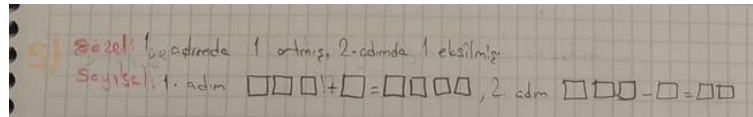 5) Sözel: 1. adımda 1 artmış, 2. adımda 1 eksilmiş
Sayısal: 1. adım □□□+□=□□□□, 2 adm □□□-□=□□